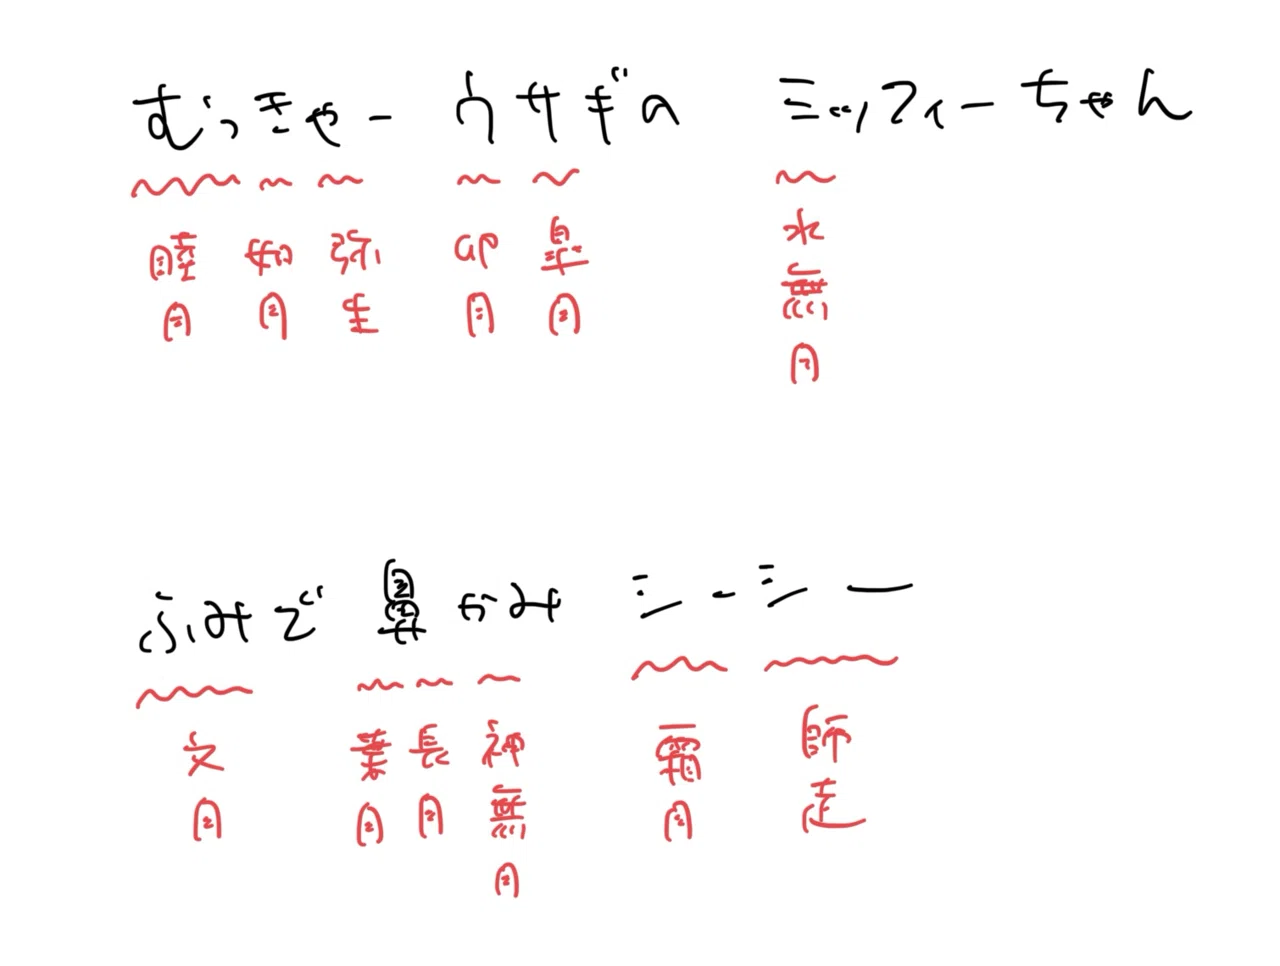 むっきゃー ウサギの ミッフィーちゃん
睦月 如月 弥生 卯月 皐月 水無月
ふみで 鼻かみ シーシー
文月 葉月 長月 神無月 霜月 師走